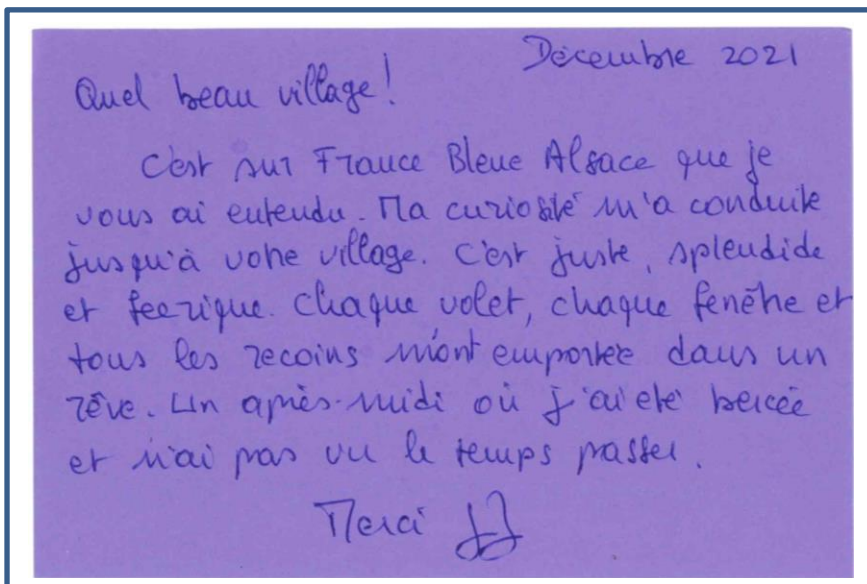 Décembre 2021
Quel beau village !
C'est sur France Bleue Alsace que je
vous ai entendu. Ma curiosité m'a conduite
jusqu'à votre village. C'est juste, splendide
et feerique. Chaque volet, chaque fenêtre et
tous les recoins m'ont emportée dans un
rêve. Un après-midi où j'ai été bercée
et n'ai pas vu le temps passer.
Merci